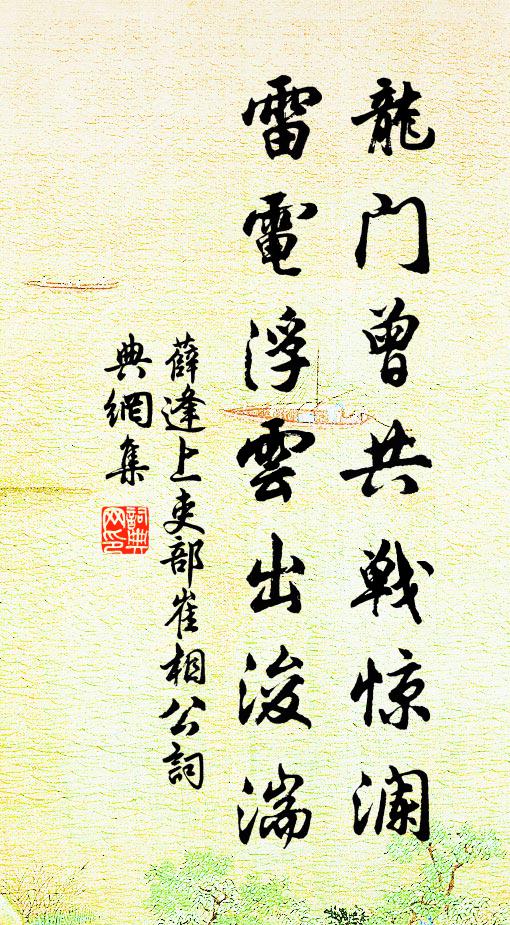 龍门曾共戦惊澜
雷電浮雲出浚湍
薛逢上吏部崔相公詞
典網集
詞典
网印